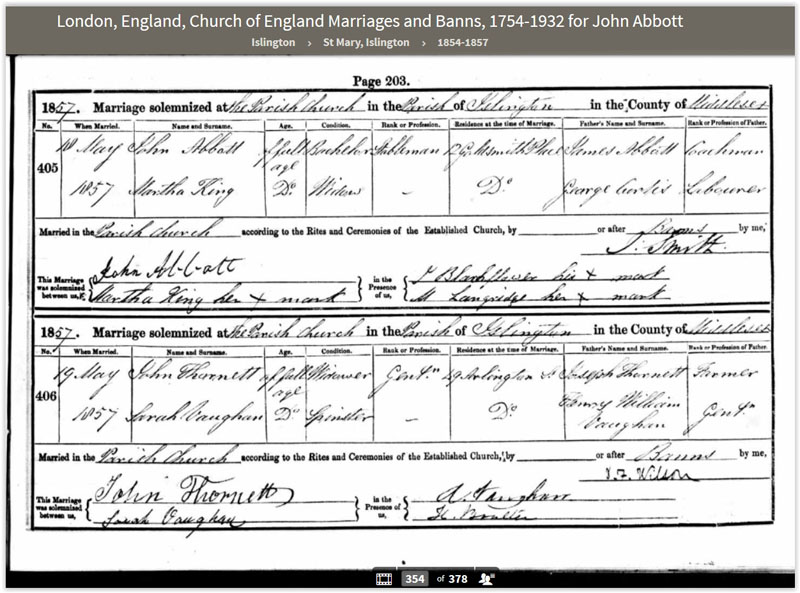 London, England, Church of England Marriages and Banns, 1754-1932 for John Abbott
Islington › St Mary, Islington › 1854-1857
Page 203.
1857. Marriage solemnized at the Parish church in the Parish of Islington in the County of Middlesex
No. When Married. Name and Surname. Age. Condition. Rank or Profession. Residence at the time of Marriage. Father's Name and Surname. Rank or Profession of Father.
405
May John Abbott of full age Bachelor James Abbott Coachman
1857 Martha King Do Widow – Do George Labourer
Married in the Parish church according to the Rites and Ceremonies of the Established Church, by or after Banns by me,
J. Smith
This Marriage was solemnized between us,
John Abbott
Martha King her x mark
in the Presence of us,
his x mark
M Langridge her x mark
1857. Marriage solemnized at the Parish church in the Parish of Islington in the County of Middlesex
No. When Married. Name and Surname. Age. Condition. Rank or Profession. Residence at the time of Marriage. Father's Name and Surname. Rank or Profession of Father.
406
19 May John Thornett of full age Widower Gentn 29 Arlington Joseph Thornett Farmer
1857 Sarah Vaughan Do Spinster – Do Henry William Vaughan Gentn
Married in the Parish church according to the Rites and Ceremonies of the Established Church, by or after Banns by me,
Wilson
This Marriage was solemnized between us,
John Thornett
Sarah Vaughan
in the Presence of us,
A. Vaughan
354 of 378